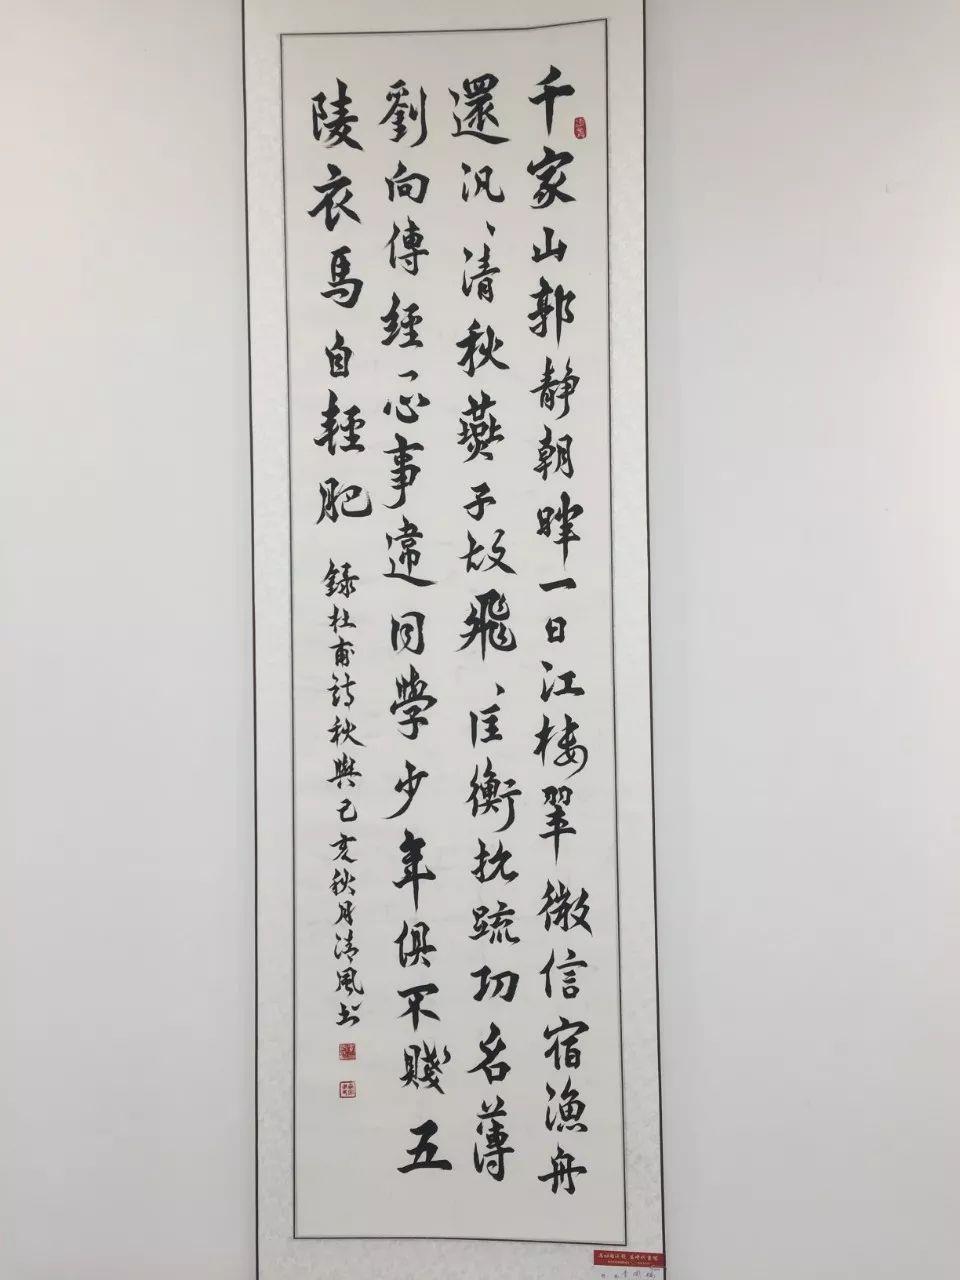 千家山郭靜朝暉一日江樓翠微信宿漁舟
還汎、清秋燕子故飛、匡衡抗疏功名薄
劉向傳經心事違同學少年俱不賤五
陵衣馬自輕肥 錄杜甫詩秋興己亥秋月清風书